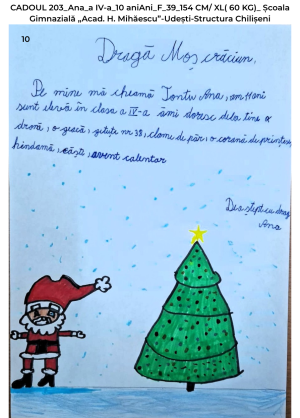 CADOUL 203_Ana_a IV-a_10 aniAni_F_39_154 CM/ XL( 60 KG)_ Școala
Gimnazială „Acad. H. Mihăescu”-Udești-Structura Chilișeni
10
Dragă Moș crăciun,
Pe mine mă cheamă Ana, am 11 ani
sunt elevă în clasa a IV-a îmi doresc dela tine o
dronă, o geacă, getuțe nr 39, clame de păr, o coroană de prințesă,
hindamă, căști, advent calentar
Dea ștept cu drag
Ana